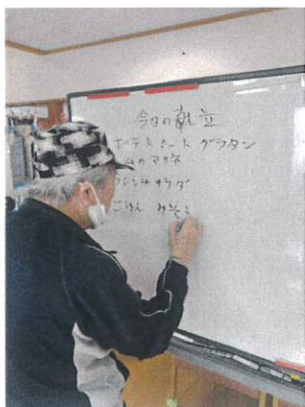 今日の献立
ポテトミートグラタン
ムのマリネ
フレンチサラダ
ごはん みそし